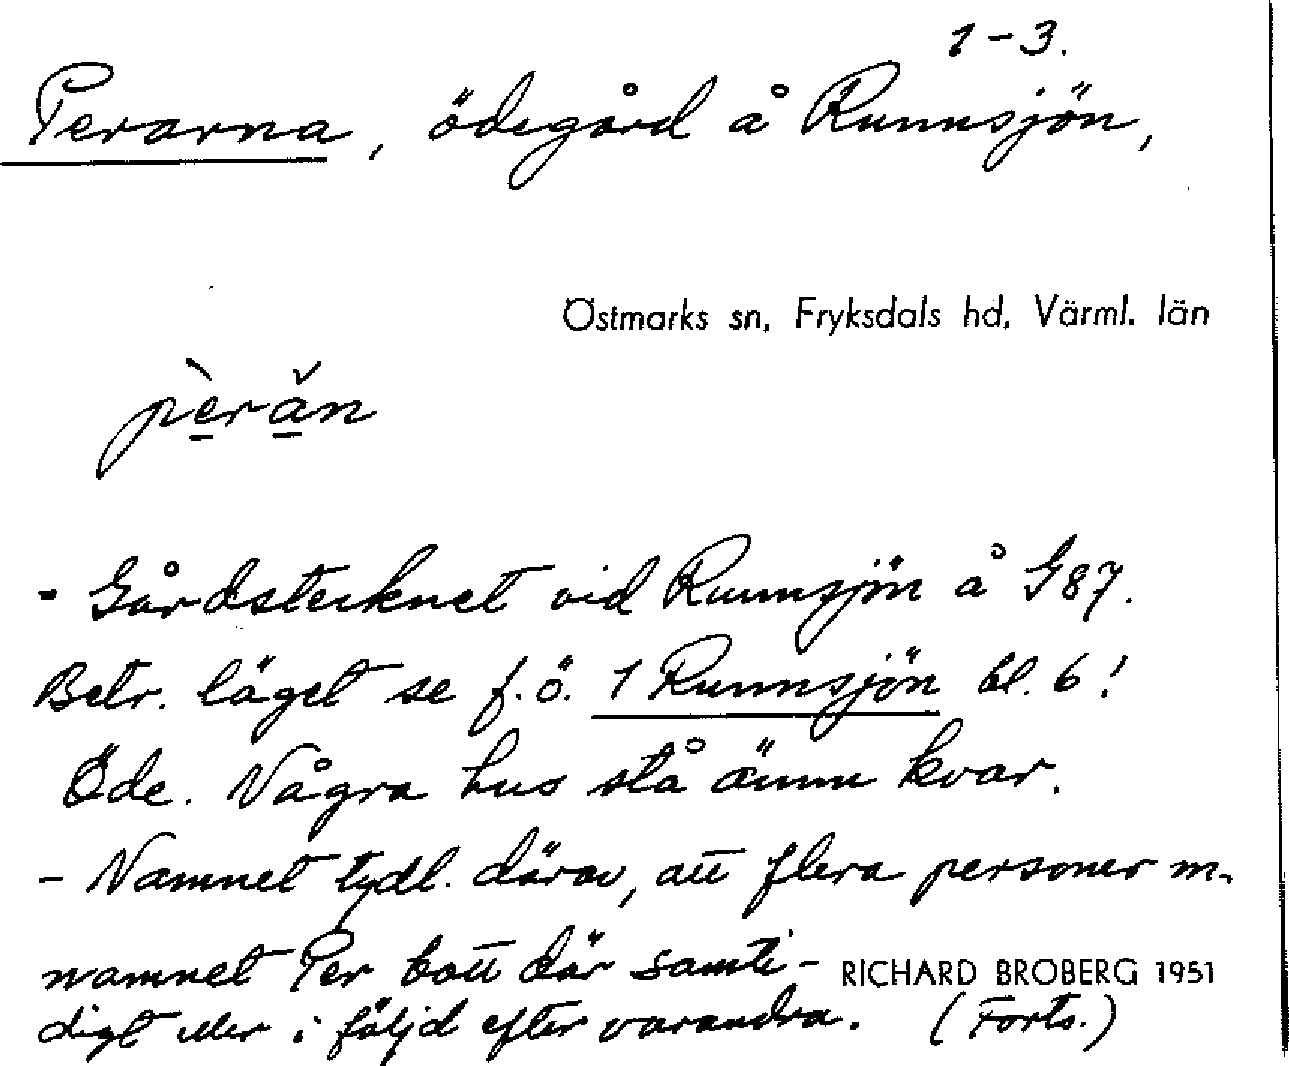 1-3.
Perarna, ödegård å Runnsjön,
Östmarks sn, Fryksdals hd, Värml. län
pèrăn
- Gårdstecknet vid Runnsjön å G87.
Betr. läget se f.ö. 1 Runnsjön bl. 6!
Öde. Några hus stå ännu kvar.
- Namnet tydl. därav, att flera personer m.
namnet Per bott där samti-
RICHARD BROBERG 1951
digt eller i följd efter varandra. (Forts.)